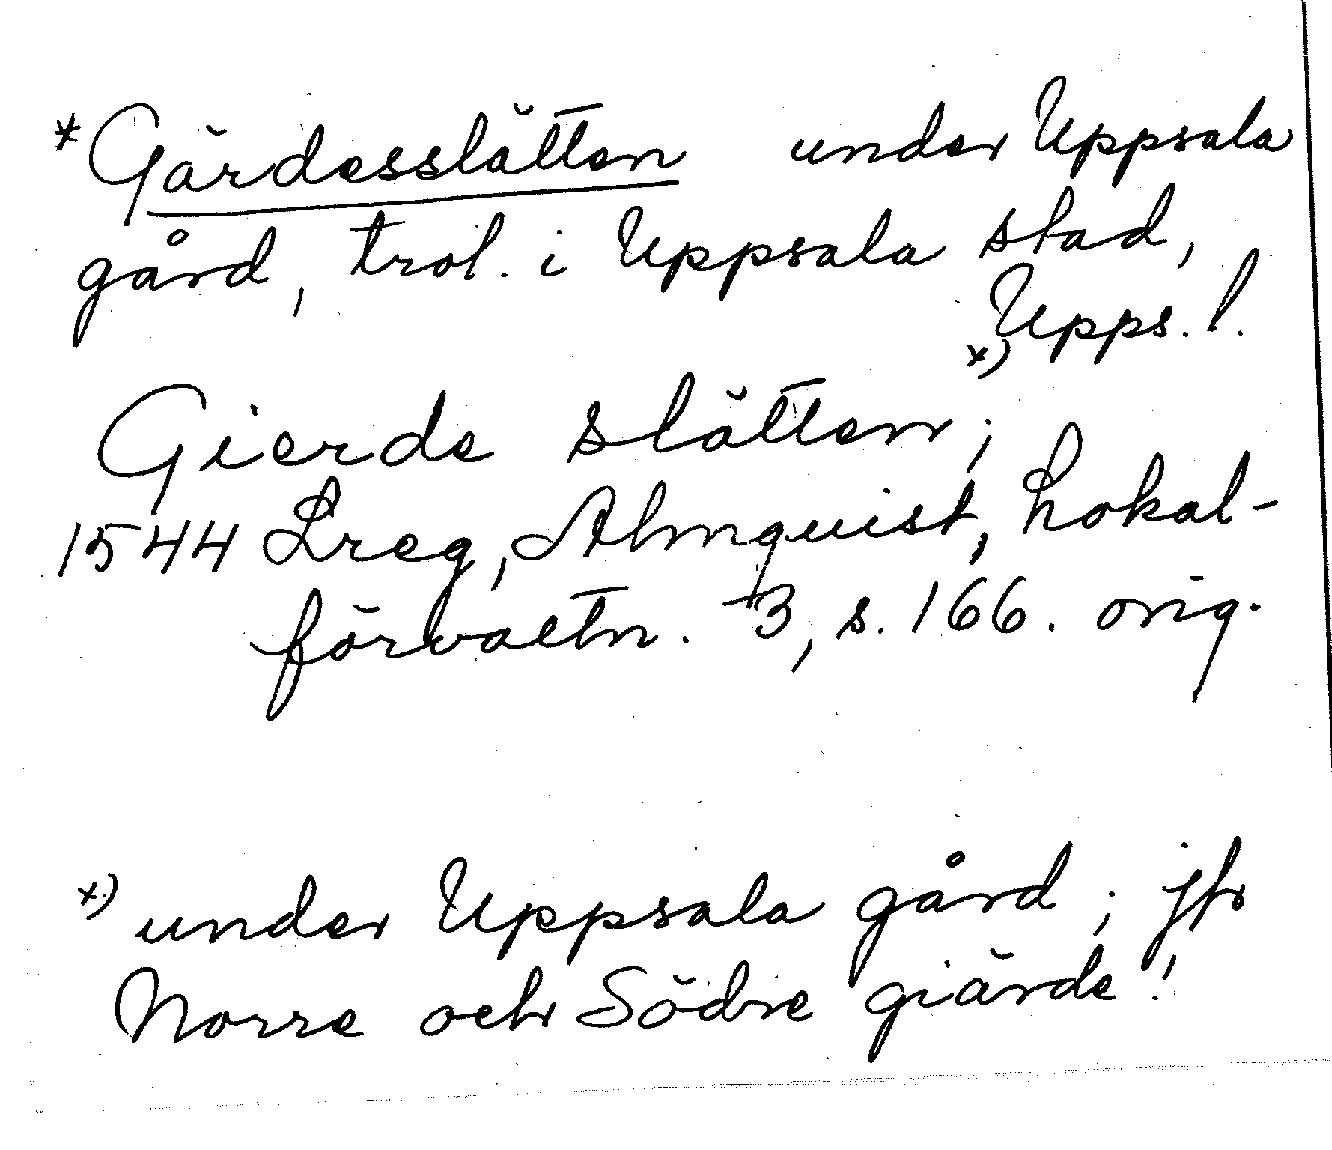 *Gärdesslätten under Uppsala
gård, trol. i Uppsala stad,
Upps. l.
Gierde slätten *);
1544 Lreg, Almquist, Lokal-
förvaltn. 3, s. 166. orig.
*) under Uppsala gård; jfr
Norre och Södre giärde!